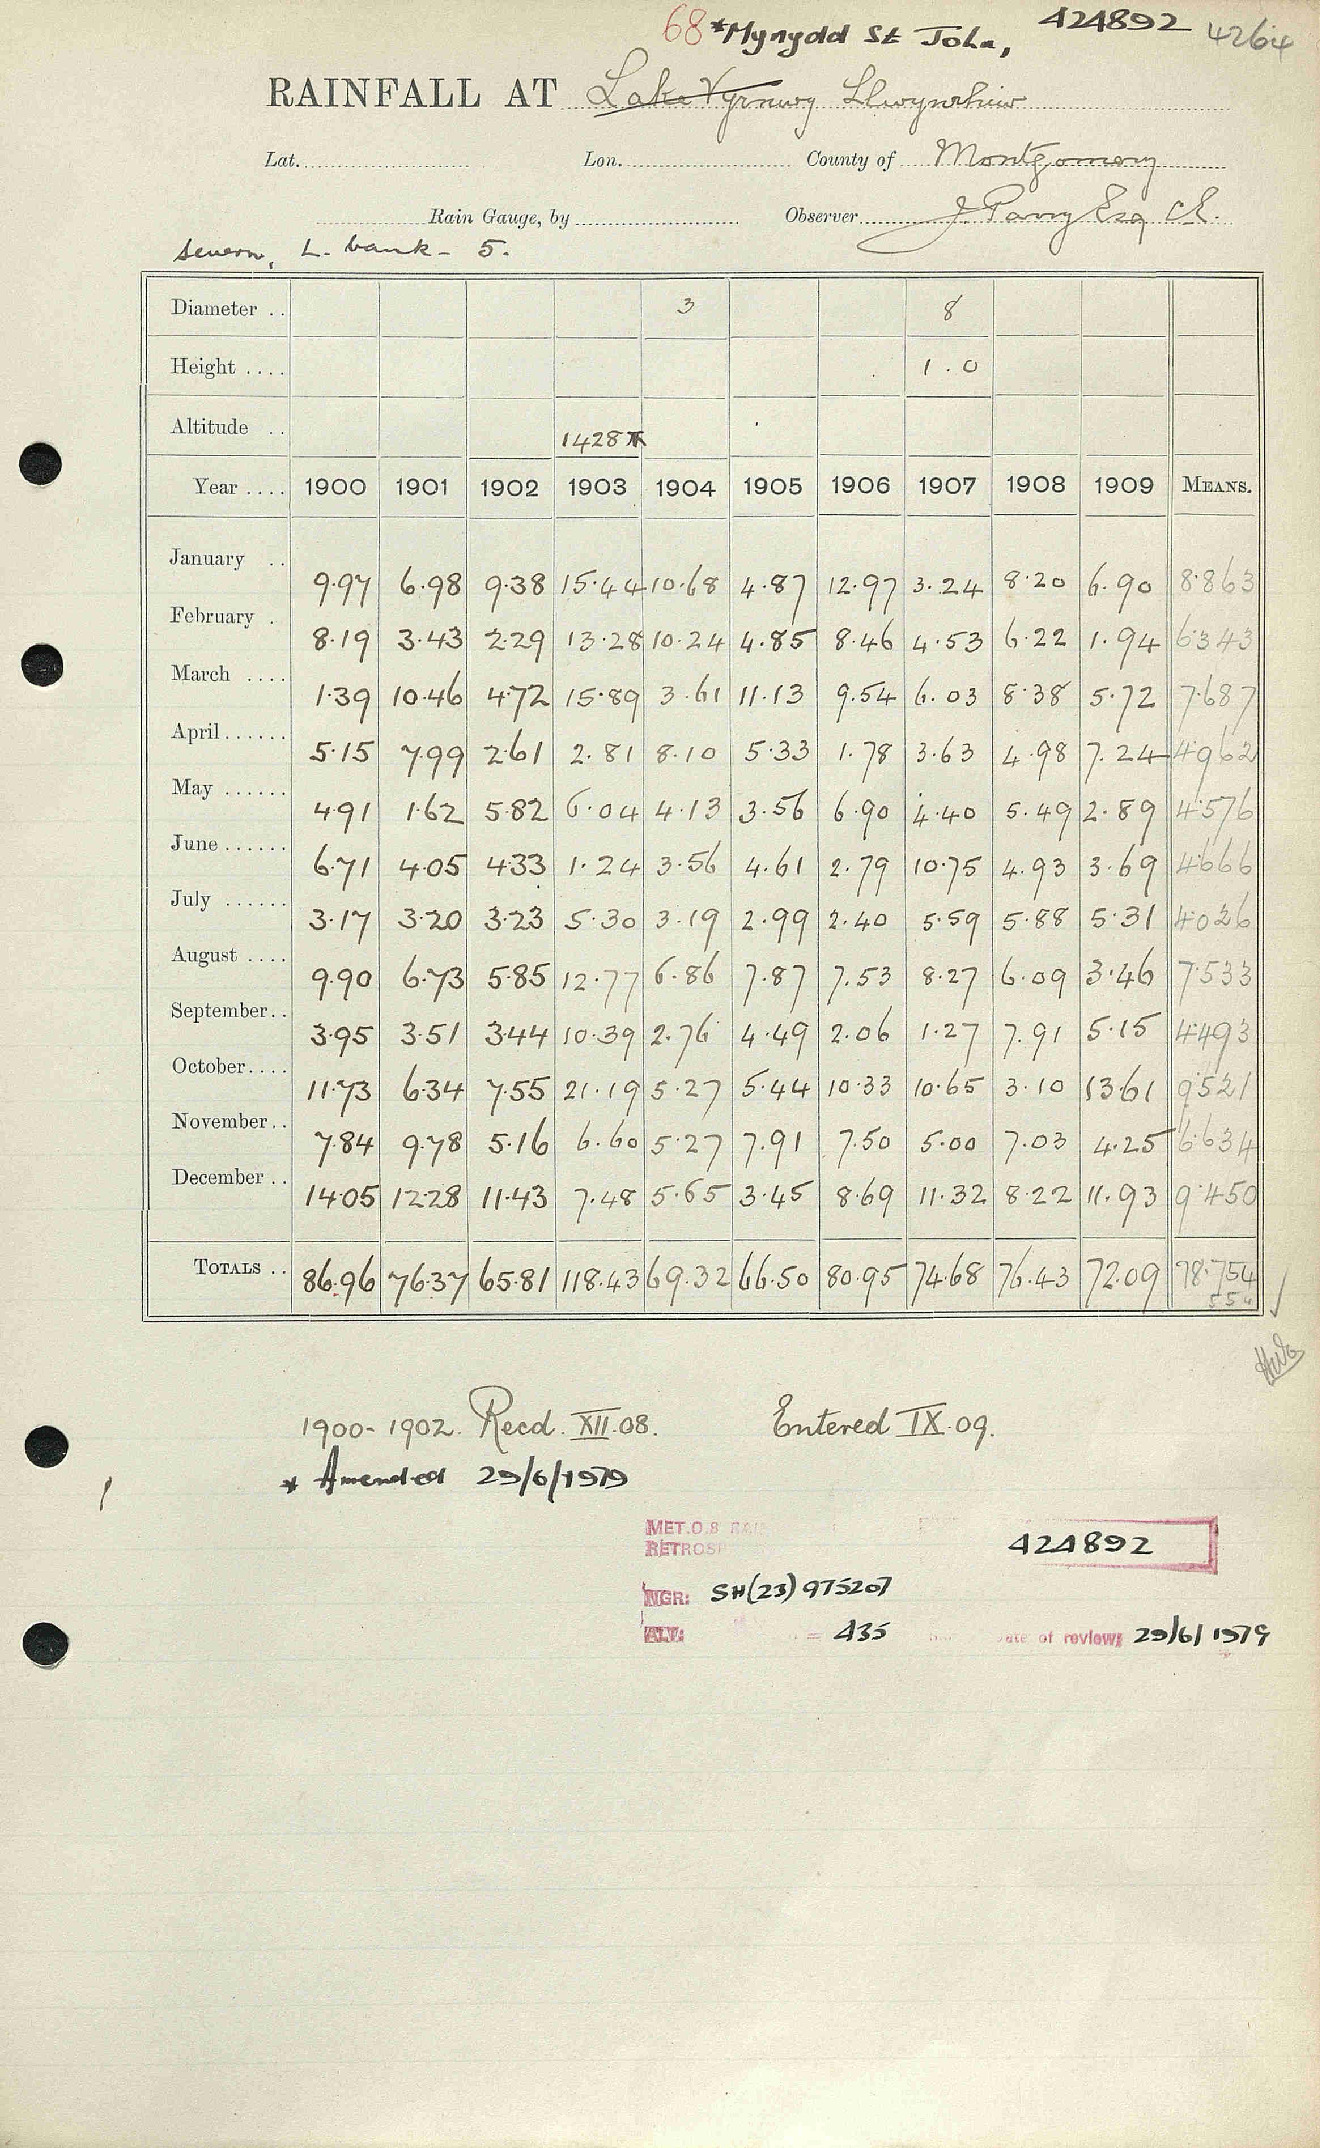 68 *Mynydd St John, 424892 4264
RAINFALL AT Lake Vyrnwy Llwynrhiw
Lat. Lon. County of Montgomery
Rain Gauge, by Observer J. Parry Esq C.E.
Severn, L. bank - 5.
Diameter .. 3 8
Height .... 1.0
Altitude .. 1428
Year .... 1900 1901 1902 1903 1904 1905 1906 1907 1908 1909 MEANS.
January .. 9.97 6.98 9.38 15.44 10.68 4.87 12.97 3.24 8.20 6.90 8.863
February . 8.19 3.43 2.29 13.28 10.24 4.85 8.46 4.53 6.22 1.94 6.343
March .... 1.39 10.46 4.72 15.89 3.61 11.13 9.54 6.03 8.38 5.72 7.687
April ...... 5.15 7.99 2.61 2.81 8.10 5.33 1.78 3.63 4.98 7.24 4.962
May ...... 4.91 1.62 5.82 6.04 4.13 3.56 6.90 4.40 5.49 2.89 4.576
June ...... 6.71 4.05 4.33 1.24 3.56 4.61 2.79 10.75 4.93 3.69 4.666
July ...... 3.17 3.20 3.23 5.30 3.19 2.99 2.40 5.59 5.88 5.31 4.026
August .... 9.90 6.73 5.85 12.77 6.86 7.87 7.53 8.27 6.09 3.46 7.533
September .. 3.95 3.51 3.44 10.39 2.76 4.49 2.06 1.27 7.91 5.15 4.493
October .... 11.73 6.34 7.55 21.19 5.27 5.44 10.33 10.65 3.10 13.61 9.521
November .. 7.84 9.78 5.16 6.60 5.27 7.91 7.50 5.00 7.03 4.25 6.634
December .. 14.05 12.28 11.43 7.48 5.65 3.45 8.69 11.32 8.22 11.93 9.450
TOTALS .. 86.96 76.37 65.81 118.43 69.32 66.50 80.95 74.68 76.43 72.09 78.754
554
1900-1902. Recd. XII.08. Entered IX.09.
* Amended 29/6/1979
MET.O.8
424892
NGR: SH(23)975207
ALT: = 435 of review: 29/6/1979